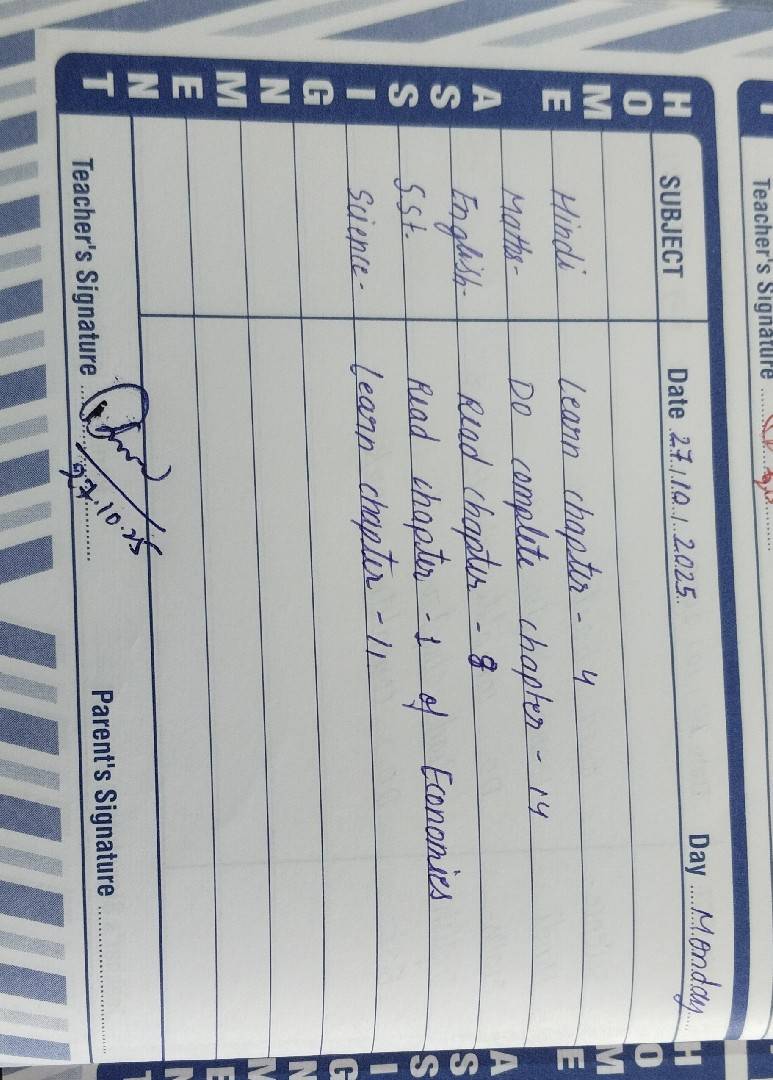 Teacher's Signature
HOME ASSIGNMENT
SUBJECT Date 27/10/2025 Day Monday
Hindi Learn chapter - 4
Maths - Do complete chapter - 14
English - Read chapter - 8
S.St. Read chapter - 1 of Economics
Science - Learn chapter - 11
Teacher's Signature 27.10.25 Parent's Signature
HOME ASSIGNMENT